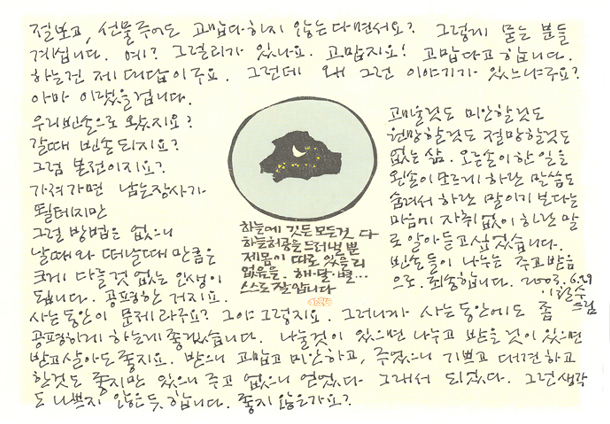 절보고, 선물주어도 고맙다하지 않는다면서요? 그렇게 묻는 분들
계십니다. 예? 그럴리가 있나요. 고맙지요! 고맙다고 합니다.
하는건 제 대답이구요. 그런데 왜 그런 이야기가 있느냐구요?
아마 이랬을겁니다.
우리빈손으로 왔지요?
갈때 빈손 되지요?
그럼 본전이지요?
가져가면 남는장사가
될테지만
그럴 방법은 없으니
날때와 떠날때 만큼은
크게 다를것 없는 인생이
됩니다. 공평한 거지요.
고마울것도 미안할것도
원망할것도 절망할것도
없는 삶. 오른손이 한 일을
왼손이 모르게 하란 말씀도
숨겨서 하란 말이기 보다는
마음에 자취없이 하란 말
로 알아듣고싶었습니다.
빈손들이 나누는 주고받음
으로. 최송합니다. 2003. 6.29
이철수
드림
하늘에 깃든 모든것 다
하늘허공을 드러낼 뿐
제몸이 따로 있을리
없음을. 해·달·별...
스스로 잘 압니다
사는동안이 문제라구요? 그야 그렇지요. 그러니까 사는동안에도 좀
공평하게 하는게 좋겠습니다. 나눌것이 있으면 나누고 받을것이 있으면
받고살아도 좋지요. 받으니 고맙고 미안하고, 주었으니 기쁘고 대견하고
할것도 좋지만 있으니 주고 없으니 얻었다 그래서 되었다. 그런생각
도 나쁘지 않은듯 합니다. 좋지 않은가요?